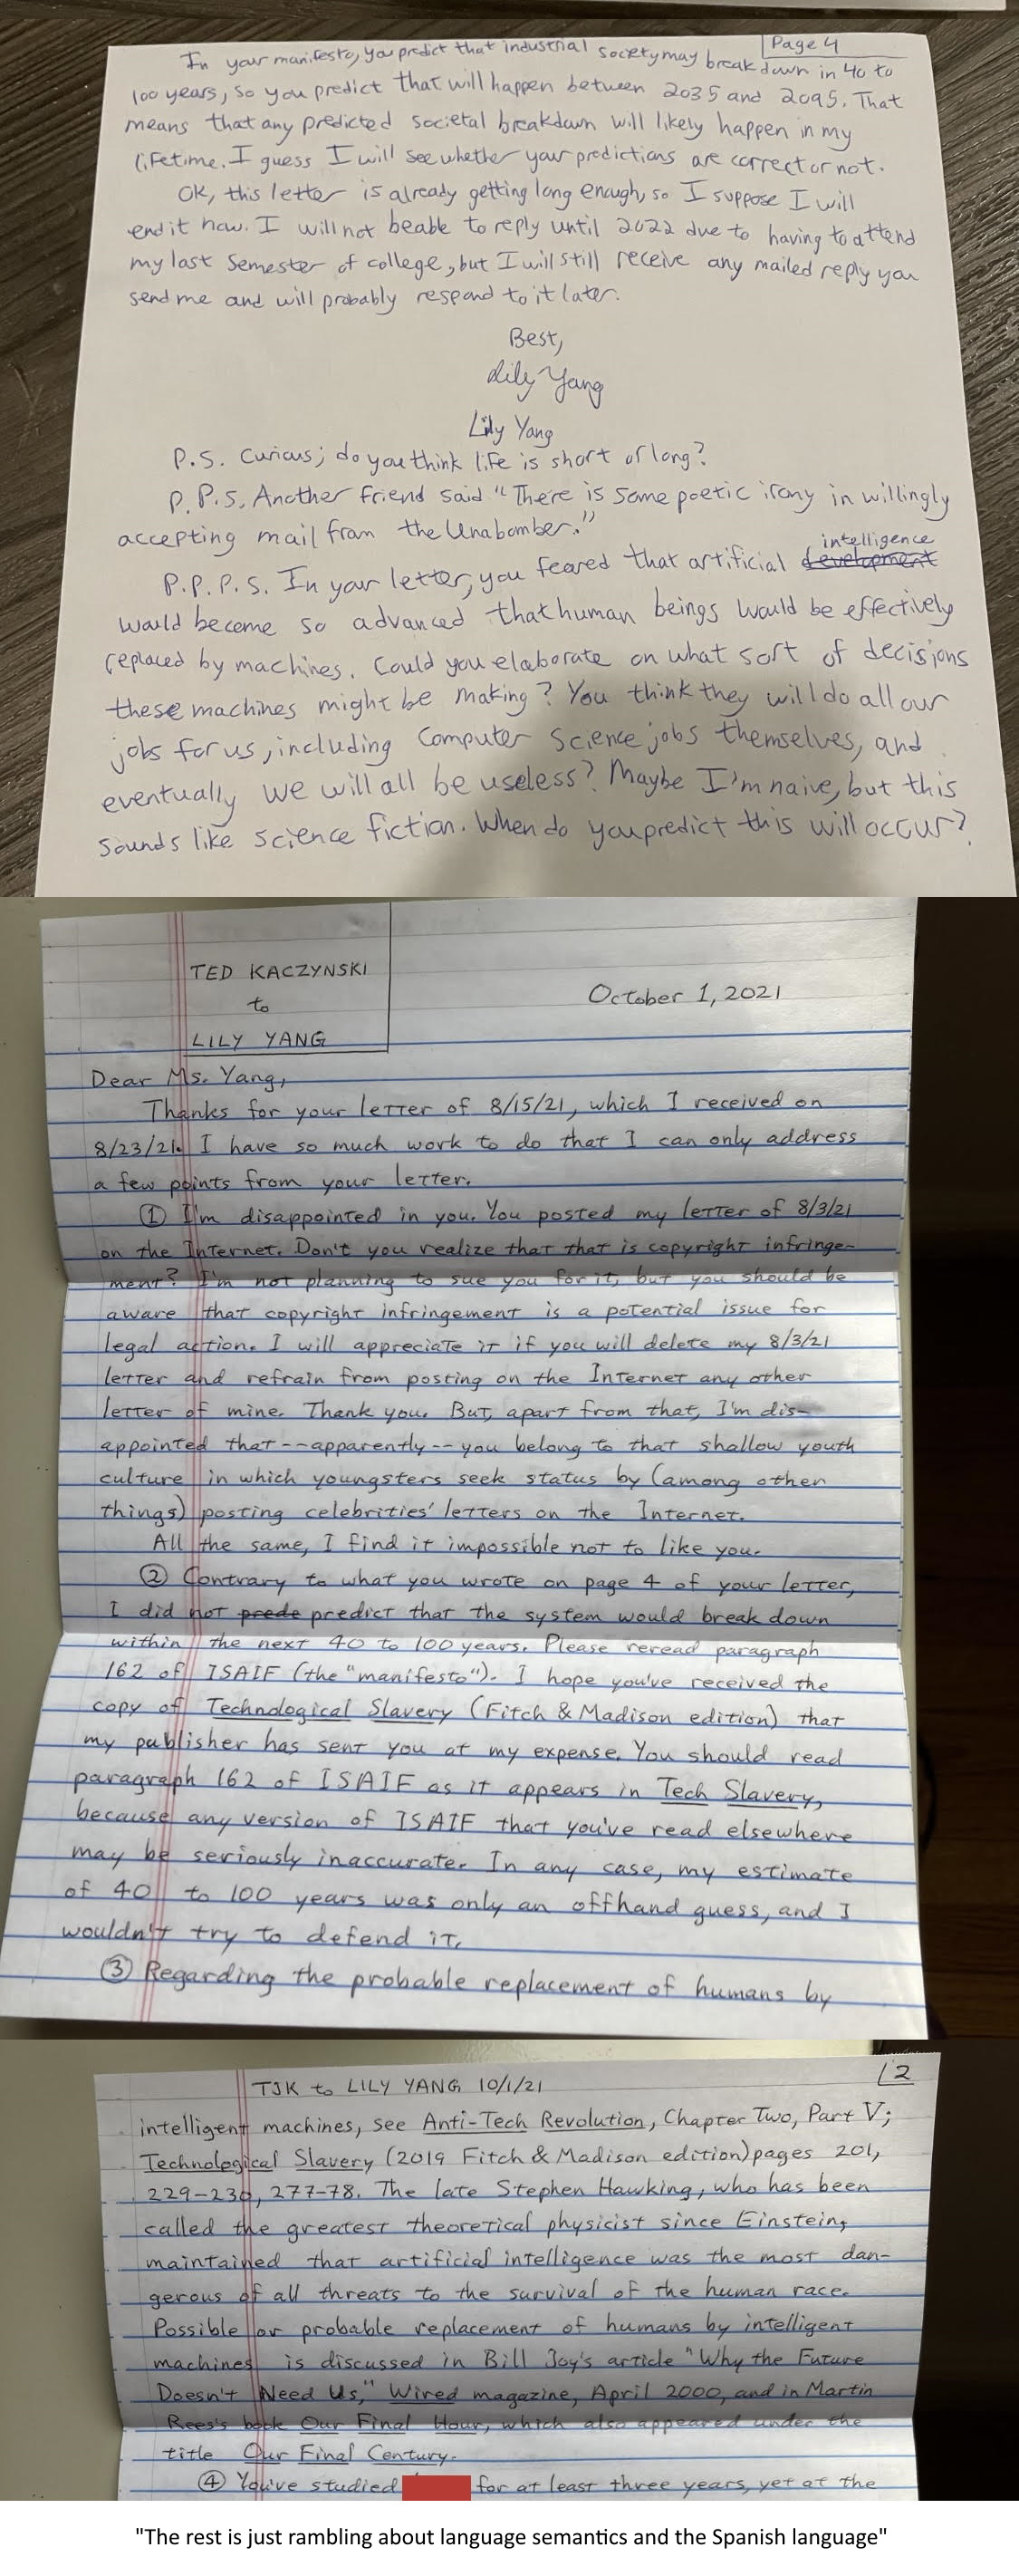 Page 4
In your manifesto, you predict that industrial society may break down in 40 to
100 years, so you predict that will happen between 2035 and 2095. That
means that any predicted societal breakdown will likely happen in my
lifetime. I guess I will see whether your predictions are correct or not.
OK, this letter is already getting long enough, so I suppose I will
end it now. I will not be able to reply until 2022 due to having to attend
my last semester of college, but I will still receive any mailed reply you
send me and will probably respond to it later.
Best,
Lily Yang
Lily Yang
P.S. Curious; do you think life is short or long?
P.P.S. Another friend said "There is some poetic irony in willingly
accepting mail from the Unabomber."
intelligence
P.P.P.S. In your letter, you feared that artificial development
would become so advanced that human beings would be effectively
replaced by machines. Could you elaborate on what sort of decisions
these machines might be making? You think they will do all our
jobs for us, including Computer Science jobs themselves, and
eventually we will all be useless? Maybe I'm naive, but this
sounds like science fiction. When do you predict this will occur?
TED KACZYNSKI
to
LILY YANG
October 1, 2021
Dear Ms. Yang,
Thanks for your letter of 8/15/21, which I received on
8/23/21. I have so much work to do that I can only address
a few points from your letter.
① I'm disappointed in you. You posted my letter of 8/3/21
on the Internet. Don't you realize that that is copyright infringe-
ment? I'm not planning to sue you for it, but you should be
aware that copyright infringement is a potential issue for
legal action. I will appreciate it if you will delete my 8/3/21
letter and refrain from posting on the Internet any other
letter of mine. Thank you. But, apart from that, I'm dis-
appointed that--apparently--you belong to that shallow youth
culture in which youngsters seek status by (among other
things) posting celebrities' letters on the Internet.
All the same, I find it impossible not to like you.
② Contrary to what you wrote on page 4 of your letter,
I did not prede predict that the system would break down
within the next 40 to 100 years. Please reread paragraph
162 of ISAIF (the "manifesto"). I hope you've received the
copy of Technological Slavery (Fitch & Madison edition) that
my publisher has sent you at my expense. You should read
paragraph 162 of ISAIF as it appears in Tech Slavery,
because any version of ISAIF that you've read elsewhere
may be seriously inaccurate. In any case, my estimate
of 40 to 100 years was only an offhand guess, and I
wouldn't try to defend it.
③ Regarding the probable replacement of humans by
TJK to LILY YANG 10/1/21
2
intelligent machines, see Anti-Tech Revolution, Chapter Two, Part V;
Technological Slavery (2019 Fitch & Madison edition) pages 201,
229-230, 277-78. The late Stephen Hawking, who has been
called the greatest theoretical physicist since Einstein,
maintained that artificial intelligence was the most dan-
gerous of all threats to the survival of the human race.
Possible or probable replacement of humans by intelligent
machines is discussed in Bill Joy's article "Why the Future
Doesn't Need Us," Wired magazine, April 2000, and in Martin
Rees's book Our Final Hour, which also appeared under the
title Our Final Century.
④ You've studied for at least three years, yet at the
"The rest is just rambling about language semantics and the Spanish language"